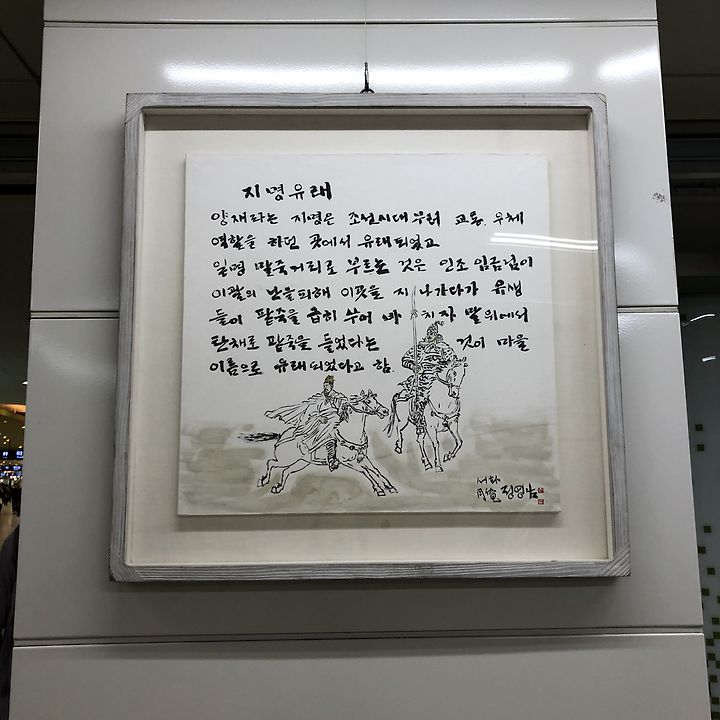 지명유래
양재라는 지명은 조선시대부터 교통, 우체
역할을 하던 곳에서 유래되었고
일명 말죽거리로 부르는 것은 인조 임금님이
이괄의 난을피해 이곳을 지나가다가 유생
들이 팥죽을 급히 쑤어 바치자 말위에서
탄채로 팥죽을 들었다는 것이 마을
이름으로 유래되었다고 함.
서화
정영남